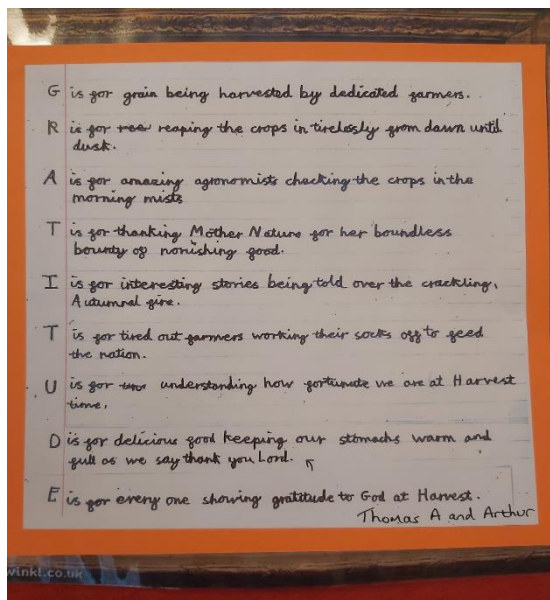 G is for grain being harvested by dedicated farmers.
R is for ree reaping the crops in tirelessly from dawn until
dusk.
A is for amazing agronomists checking the crops in the
morning mists
T is for thanking Mother Nature for her boundless
bounty of norishing food.
I is for interesting stories being told over the crackling,
Autumnal fire.
T is for tired out farmers working their socks off to feed
the nation.
U is for understanding how fortunate we are at Harvest
time.
D is for delicious food keeping our stomachs warm and
full as we say thank you Lord.
E is for every one showing gratitude to God at Harvest.
Thomas A and Arthur
winkl.co.uk